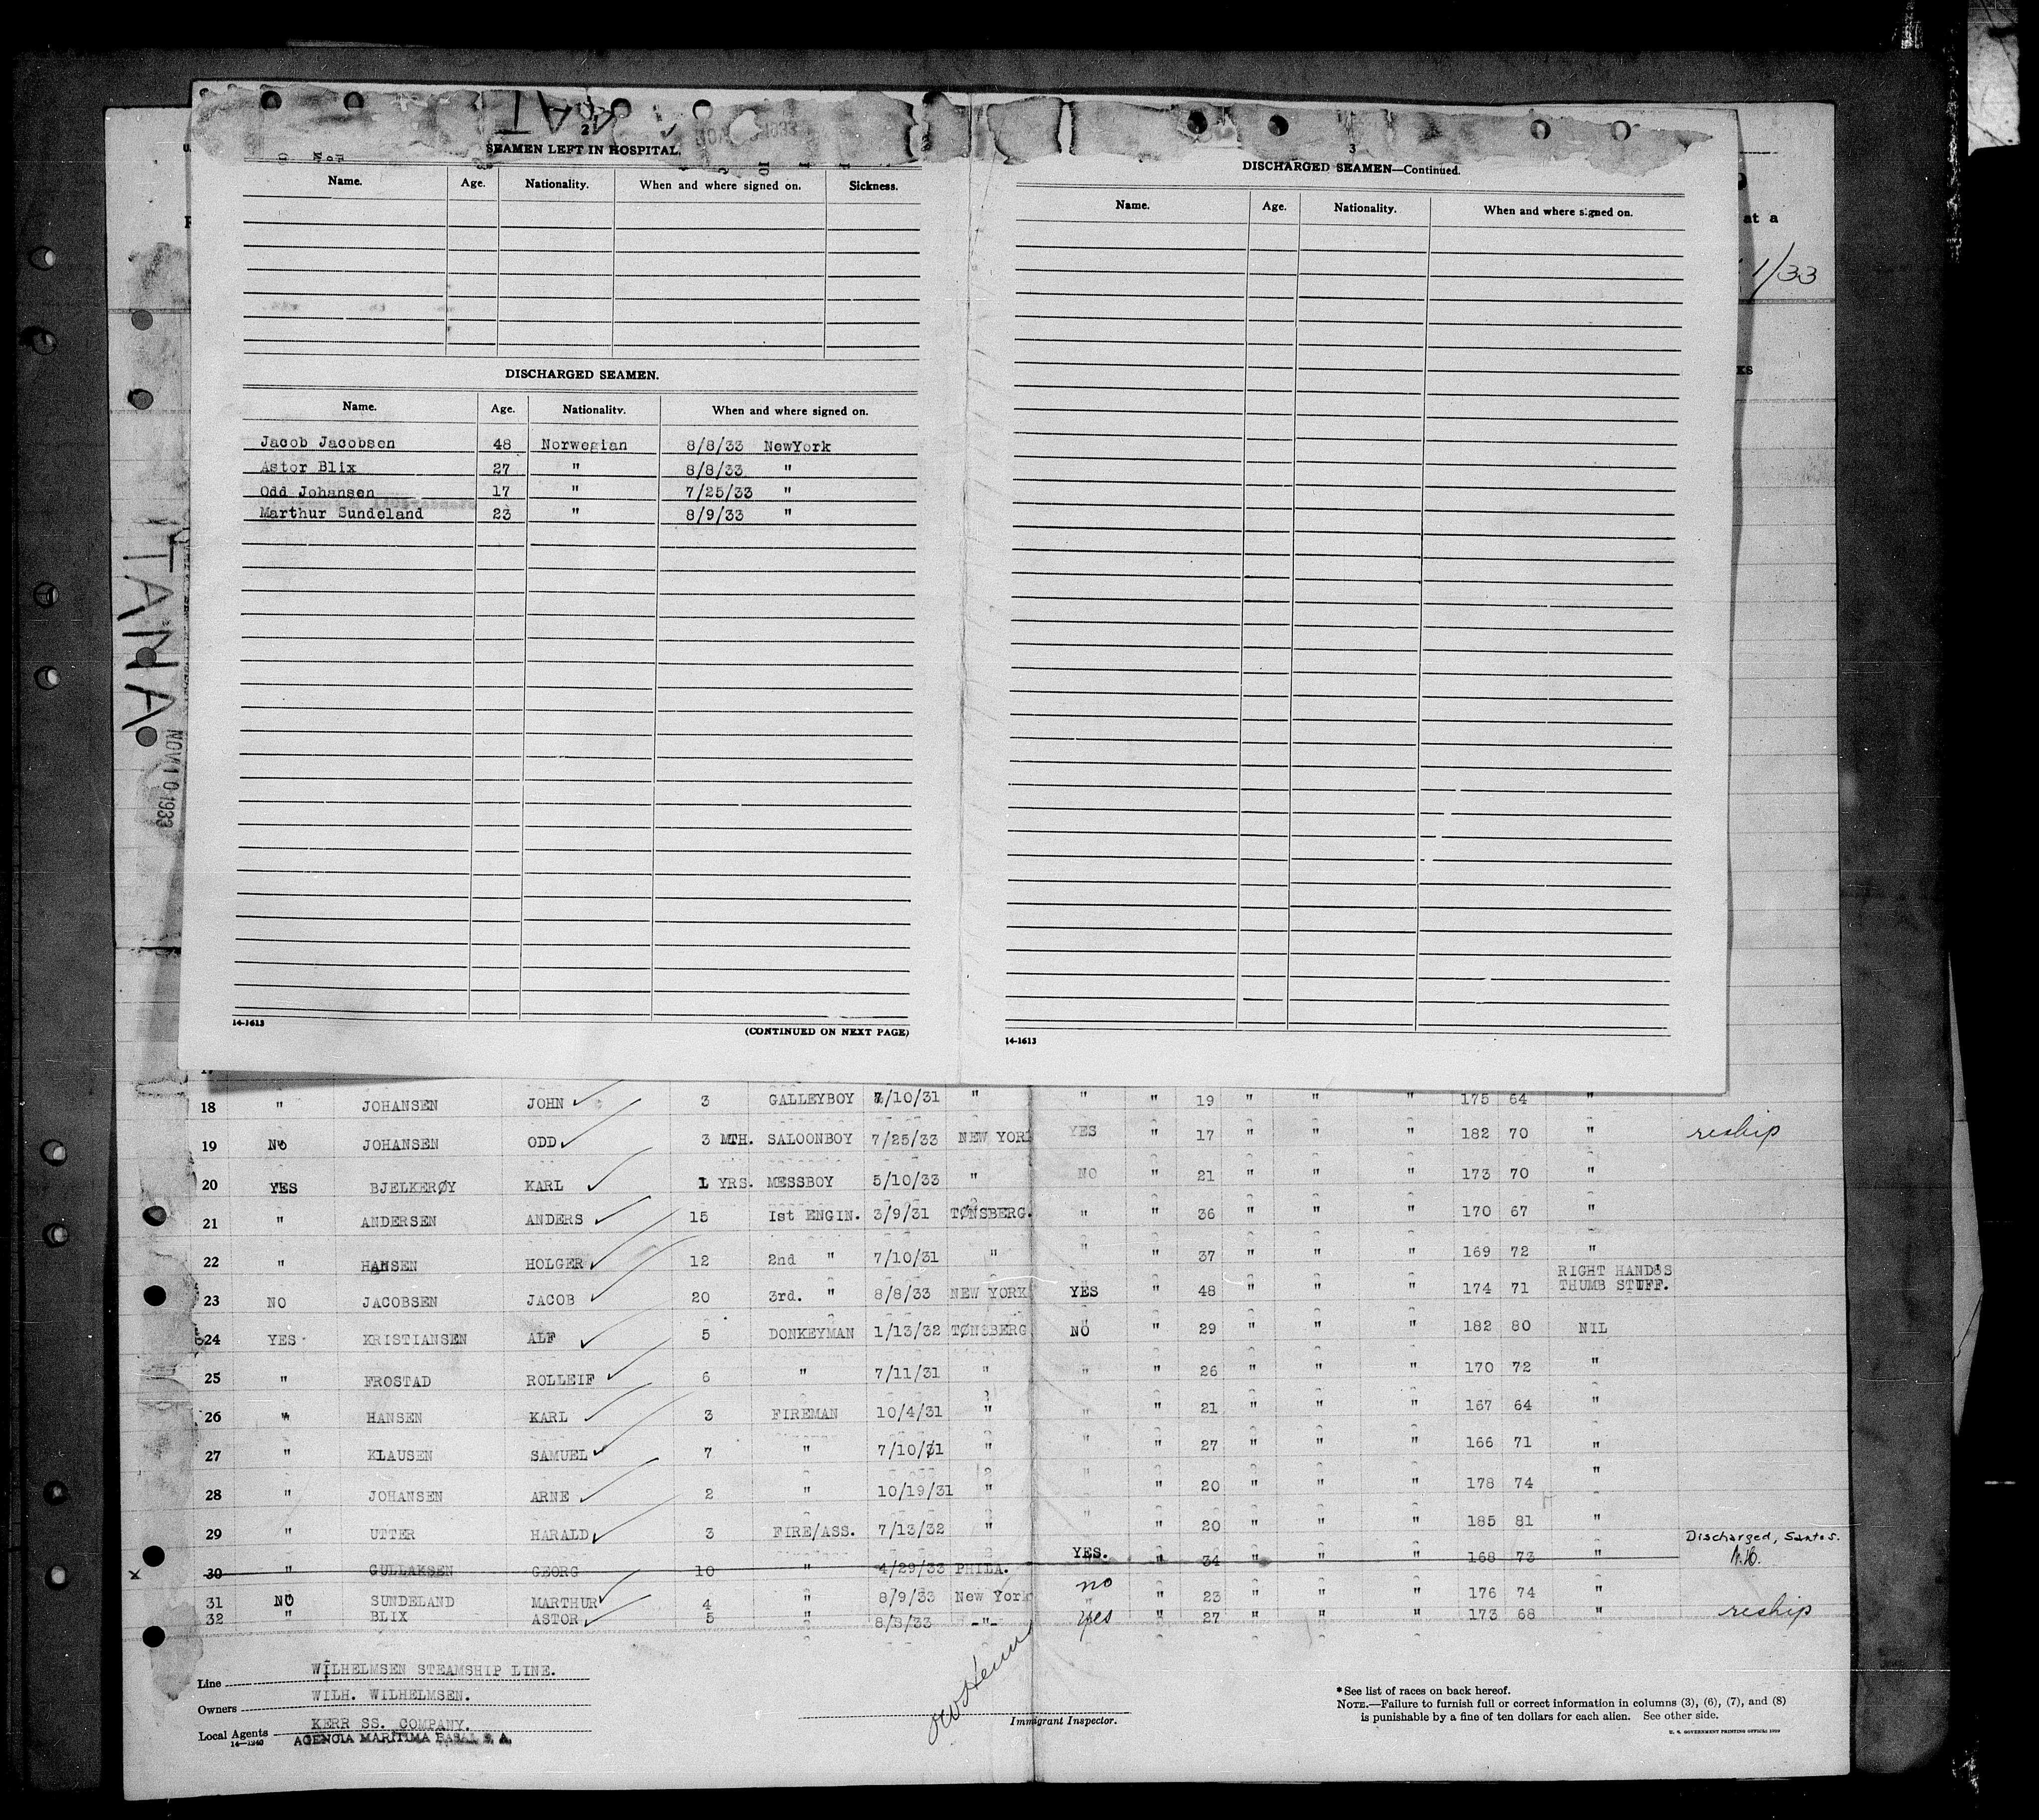 2
SEAMEN LEFT IN HOSPITAL.
Name. Age. Nationality. When and where signed on. Sickness.
DISCHARGED SEAMEN.
Name. Age. Nationality. When and where signed on.
Jacob Jacobsen 48 Norwegian 8/8/33 NewYork
Astor Blix 27 " 8/8/33 "
Odd Johansen 17 " 7/25/33 "
Marthur Sundeland 23 " 8/9/33 "
14-1613
(CONTINUED ON NEXT PAGE)
3
DISCHARGED SEAMEN—Continued.
Name. Age. Nationality. When and where signed on.
14-1613
at a
1/33
KS
TANA
NOV 10 1933
18 " JOHANSEN JOHN 3 GALLEYBOY 7/10/31 " " " 19 " " " 175 64 "
19 NO JOHANSEN ODD 3 MTH. SALOONBOY 7/25/33 NEW YORK YES " 17 " " " 182 70 " reship
20 YES BJELKERØY KARL 1 YRS. MESSBOY 5/10/33 " NO " 21 " " " 173 70 "
21 " ANDERSEN ANDERS 15 1st ENGIN. 3/9/31 TØNSBERG. " " 36 " " " 170 67 "
22 " HANSEN HOLGER 12 2nd " 7/10/31 " " " 37 " " " 169 72 "
23 NO JACOBSEN JACOB 20 3rd. " 8/8/33 NEW YORK YES " 48 " " " 174 71 RIGHT HANDS THUMB STUFF.
24 YES KRISTIANSEN ALF 5 DONKEYMAN 1/13/32 TØNSBERG NO " 29 " " " 182 80 NIL
25 " FROSTAD ROLLEIF 6 " 7/11/31 " " " 26 " " " 170 72 "
26 " HANSEN KARL 3 FIREMAN 10/4/31 " " " 21 " " " 167 64 "
27 " KLAUSEN SAMUEL 7 " 7/10/31 " " " 27 " " " 166 71 "
28 " JOHANSEN ARNE 2 " 10/19/31 " " " 20 " " " 178 74 "
29 " UTTER HARALD 3 FIRE/ASS. 7/13/32 " " " 20 " " " 185 81 "
30 " GULLAKSEN GEORG 10 " 4/29/33 PHILA. YES. " 34 " " " 168 73 " Discharged, Santos.
31 NO SUNDELAND MARTHUR 4 " 8/9/33 New York no " 23 " " " 176 74 "
32 " BLIX ASTOR 5 " 8/8/33 -"- yes " 27 " " " 173 68 " reship
Line WILHELMSEN STEAMSHIP LINE.
Owners WILH. WILHELMSEN.
Local Agents KERR SS. COMPANY.
14-1240
AGENCIA MARITIMA BASAL S. A.
Immigrant Inspector.
*See list of races on back hereof.
NOTE.—Failure to furnish full or correct information in columns (3), (6), (7), and (8)
is punishable by a fine of ten dollars for each alien. See other side.
U. S. GOVERNMENT PRINTING OFFICE: 1929